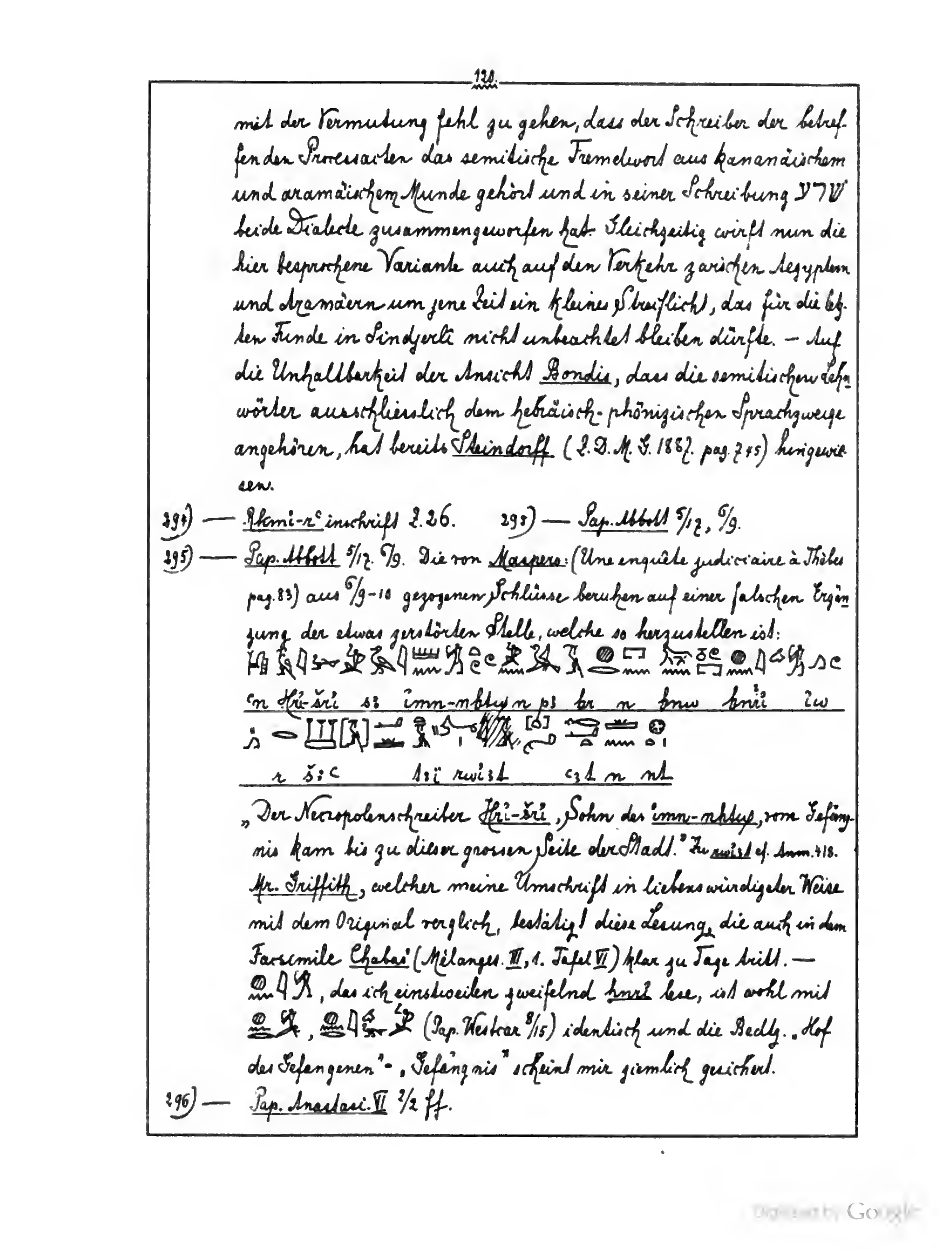 120.
mit der Vermutung fehl zu gehen, dass der Schreiber der betref-
fenden Processacten das semitische Fremdwort aus kananäischem
und aramäischem Munde gehört und in seiner Schreibung שרע
beide Dialecte zusammengeworfen hat. Gleichzeitig wirft nun die
hier besprochene Variante auch auf den Verkehr zwischen Aegyptern
und Aramäern um jene Zeit ein kleines Streiflicht, das für die letz-
ten Funde in Sindjerli nicht unbeachtet bleiben dürfte. — Auf
die Unhaltbarkeit der Ansicht Bondis, dass die semitischen Lehn-
wörter ausschliesslich dem hebräisch-phönizischen Sprachzweige
angehören, hat bereits Steindorff (Z.D.M.G. 1887. pag. 745) hingewie-
sen.
294) — Rḫmi-rꜥ inschrift Z. 26. 295) — Pap. Abbott 5/17, 6/9.
295) — Pap. Abbott 5/17. 6/9. Die von Maspero: (Une enquête judiciaire à Thèbes
pag. 83) aus 6/9-10 gezogenen Schlüsse beruhen auf einer falschen Ergän-
zung der etwas zerstörten Stelle, welche so herzustellen ist:
ꜥn Ḥri-šri s3 imn-nḫtw n p3 ḫr n ḫnw ḫnri iw
r š3ꜥ t3i rwi3t ꜥ3t n nt
„Der Necropolenschreiber Ḥri-šri, Sohn des imn-nḫtw, vom Gefäng-
nis kam bis zu dieser grossen Seite der Stadt." Zu rwi3t cf. Anm. 418.
Mr. Griffith, welcher meine Umschrift in liebenswürdigster Weise
mit dem Original verglich, bestätigt diese Lesung, die auch in dem
Facsimile Chabas' (Mélanges. III, 1. Tafel VI) klar zu Tage tritt. —
, das ich einstweilen zweifelnd ḫnri lese, ist wohl mit
, (Pap. Westcar 8/15) identisch und die Bedtg. „Hof
des Gefangenen" - „Gefängnis" scheint mir ziemlich gesichert.
296) — Pap. Anastasi. VI 2/2 ff.
Digitized by Google